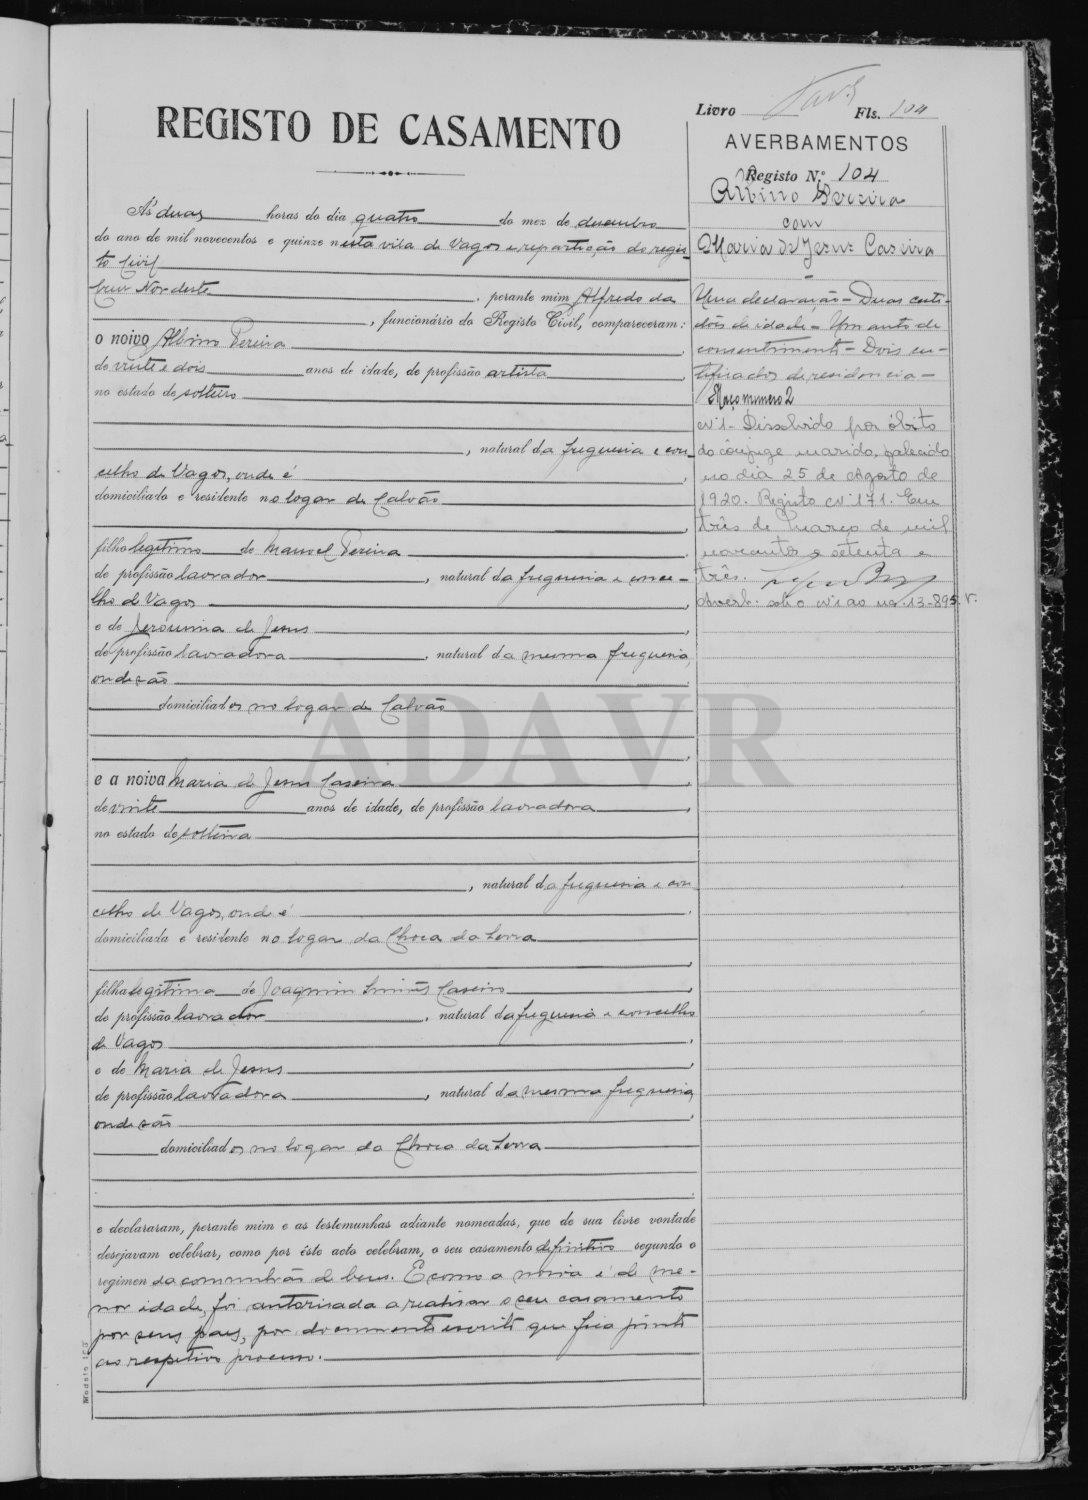 Livro Fls. 104
REGISTO DE CASAMENTO
AVERBAMENTOS
Registo N.º 104
Albino Pereira
com
Maria de Jesus Caseira
Uma declaração – Duas certi-
dões de idade – Um auto de
consentimento – Dois cer-
tificados de residencia –
Maço numero 2
Nº 1 - Dissolvido por óbito
do cônjuge marido, falecido
no dia 25 de Agosto de
1920. Registo nº 171. Em
três de Março de mil
novecentos e setenta e
três.
Averb. sob o nº 1 ao nº 13-895 v.
Ás duas horas do dia quatro do mez de dezembro
do ano de mil novecentos e quinze nesta vila de Vagos e repartição do regis-
to Civil
perante mim Alfredo da
Cruz Nordeste
, funcionário do Registo Civil, compareceram:
o noivo Albino Pereira
de vinte e dois anos de idade, de profissão artista
no estado de solteiro
, natural da freguesia e con-
celho de Vagos, onde é
domiciliado e residente no logar de Calvão
filho legitimo de Manoel Pereira
de profissão lavrador, natural da freguesia e conce-
lho de Vagos
e de Jeronima de Jesus
de profissão lavradora, natural da mesma freguesia,
onde são
domiciliados no logar de Calvão
e a noiva Maria de Jesus Caseira
de vinte anos de idade, de profissão lavradora
no estado de solteira
, natural da freguesia e con
celho de Vagos, onde é
domiciliada e residente no logar da Choca da Serra
filha legitima de Joaquim Simões Caseiro
de profissão lavrador, natural da freguesia e concelho
de Vagos
e de Maria de Jesus
de profissão lavradora, natural da mesma freguesia
onde são
domiciliados no logar da Choca da Serra
e declararam, perante mim e as testemunhas adiante nomeadas, que de sua livre vontade
desejavam celebrar, como por êste acto celebram, o seu casamento definitivo segundo o
regimen da comunhão de bens. E como a noiva é de me-
nor idade, foi autorisada a realisar o seu casamento
por seus paes, por documento escrito que fica junto
ao respetivo processo.
ADAVR